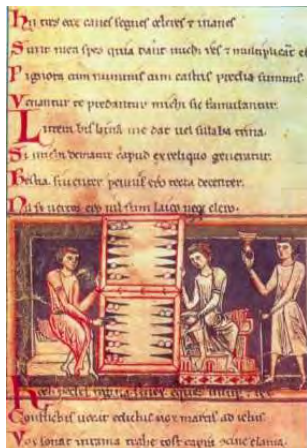 Hii tres ecce canes segnes celeres & inanes
Sunt mea spes quia dant michi res & multiplicant es
Pignora cum nummis cum castris predia summis
Venantur te predantur michi sic famulantur.
Littera bis bina me dat uel sillaba trina.
Si michi dematur capud ex reliquo generatur.
Bestia. si uenter pennis ero tecta decenter.
Nil si uertor ero nil sum laico neque clero.
regina senex eques insuper &
Conflictus uocat edictus uos martis ad ictus.
Vox sonat in rama trahe tost capra clama.